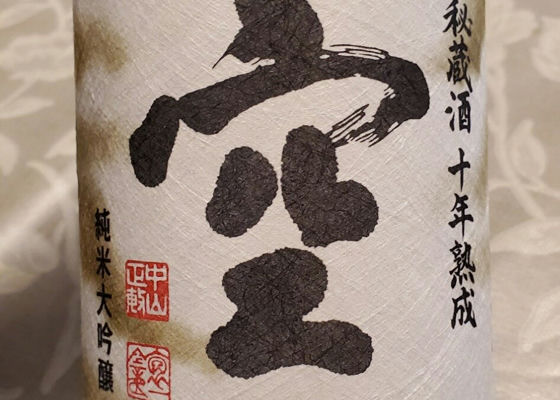 秘蔵酒 十年熟成
空
純米大吟醸
中山
正敷